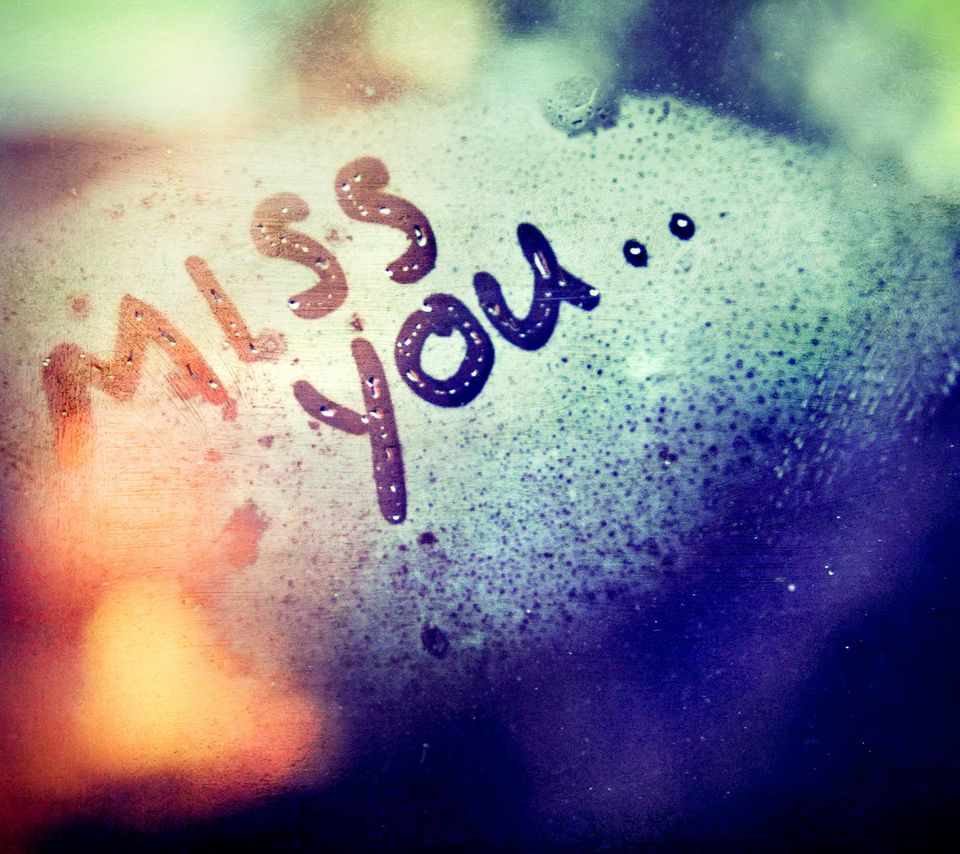 MISS
YOU..